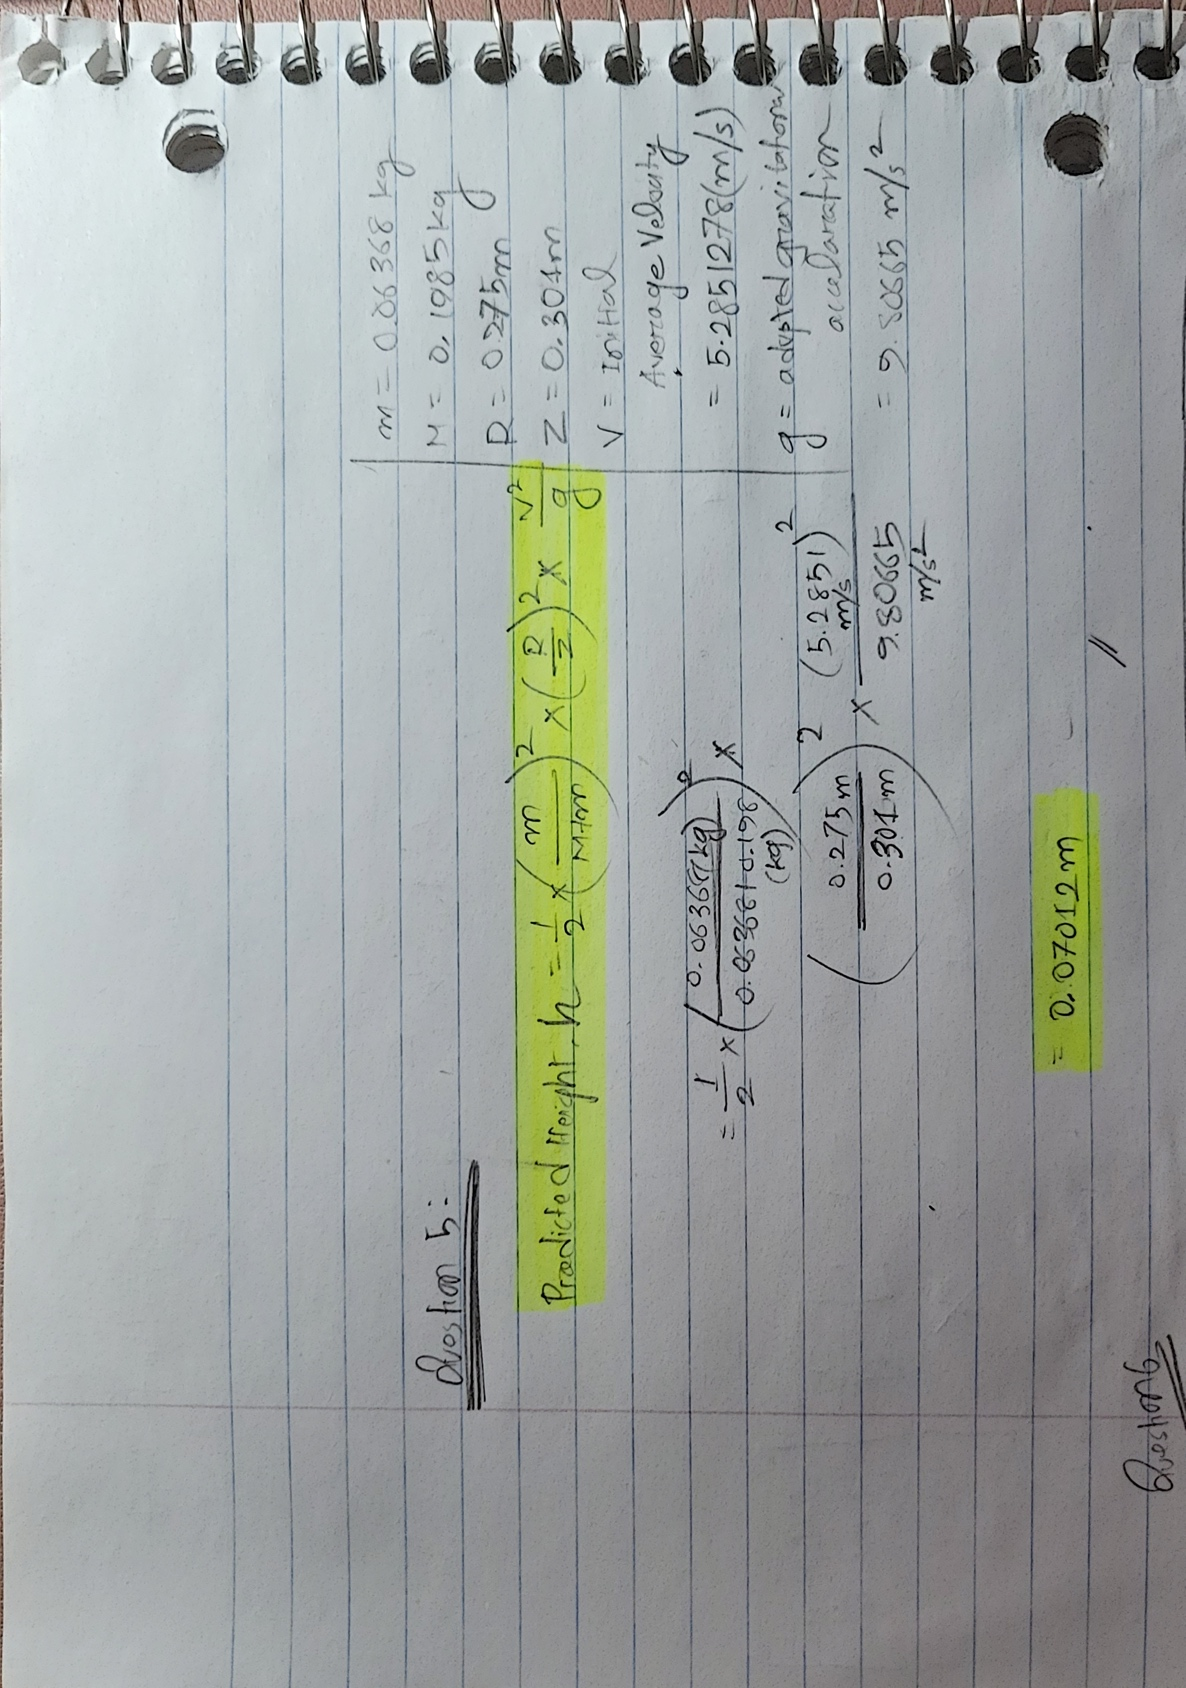 Question 5:
Predicted Height, h = 1/2 × (m/M+m)² × (R/Z)² × V²/g
= 1/2 × (0.06368(kg)/0.06368+0.198 (kg))² ×
(0.275m/0.301m)² × (5.2851 m/s)²/9.80665 m/s²
= 0.07012m
m = 0.06368 kg
M = 0.1985 kg
R = 0.275m
Z = 0.301m
V = Initial
Average Velocity
= 5.2851278(m/s)
g = adopted gravitational
accelaration
= 9.80665 m/s²
Question 6